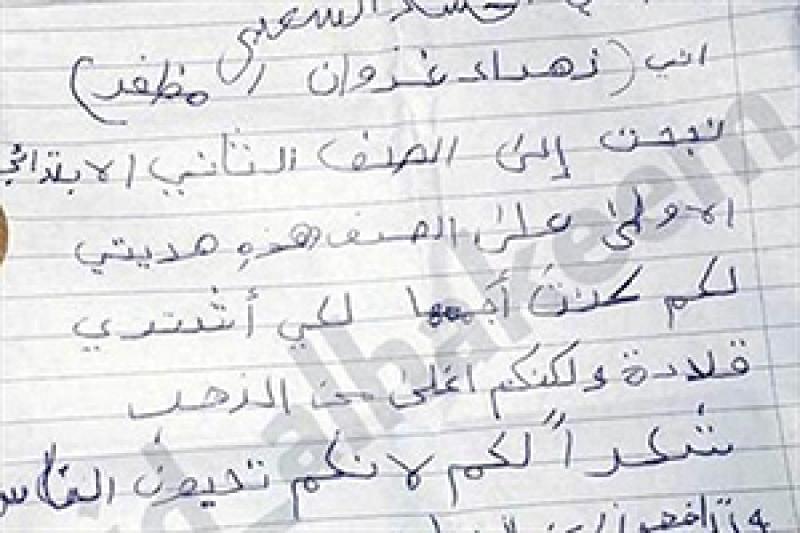 الحشد الشعبي
اني (زهراء غزوان مظفر)
نجحت إلى الصف الثاني الابتدائي
الاولى على الصف هذه هديتي
لكم كنت أجمعها لكي أشتري
قلادة ولكنكم اغلى من الذهب
شكراً لكم لانكم تحبون الناس
وتدافعون عن
alhakeem